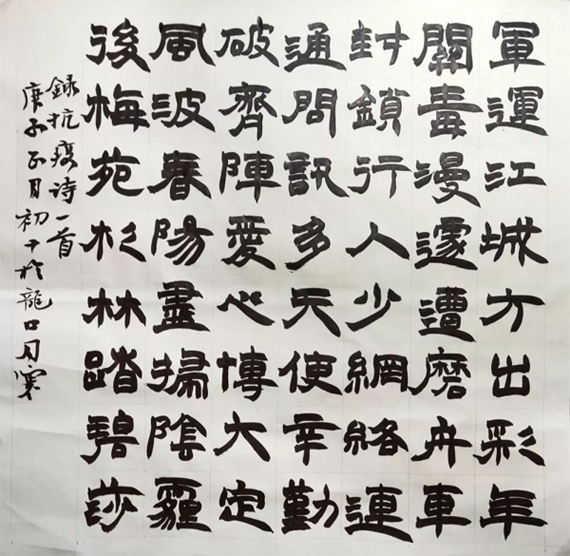 軍運江城方出彩年
關毒漫遽遭磨舟車
封鎖行人少網絡連
通問訊多天使辛勤
破齊陣愛心博大定
風波春陽盡掃陰霾
後梅苑杉林踏碧莎
録抗疫诗一首
庚子正月初十於龍口周